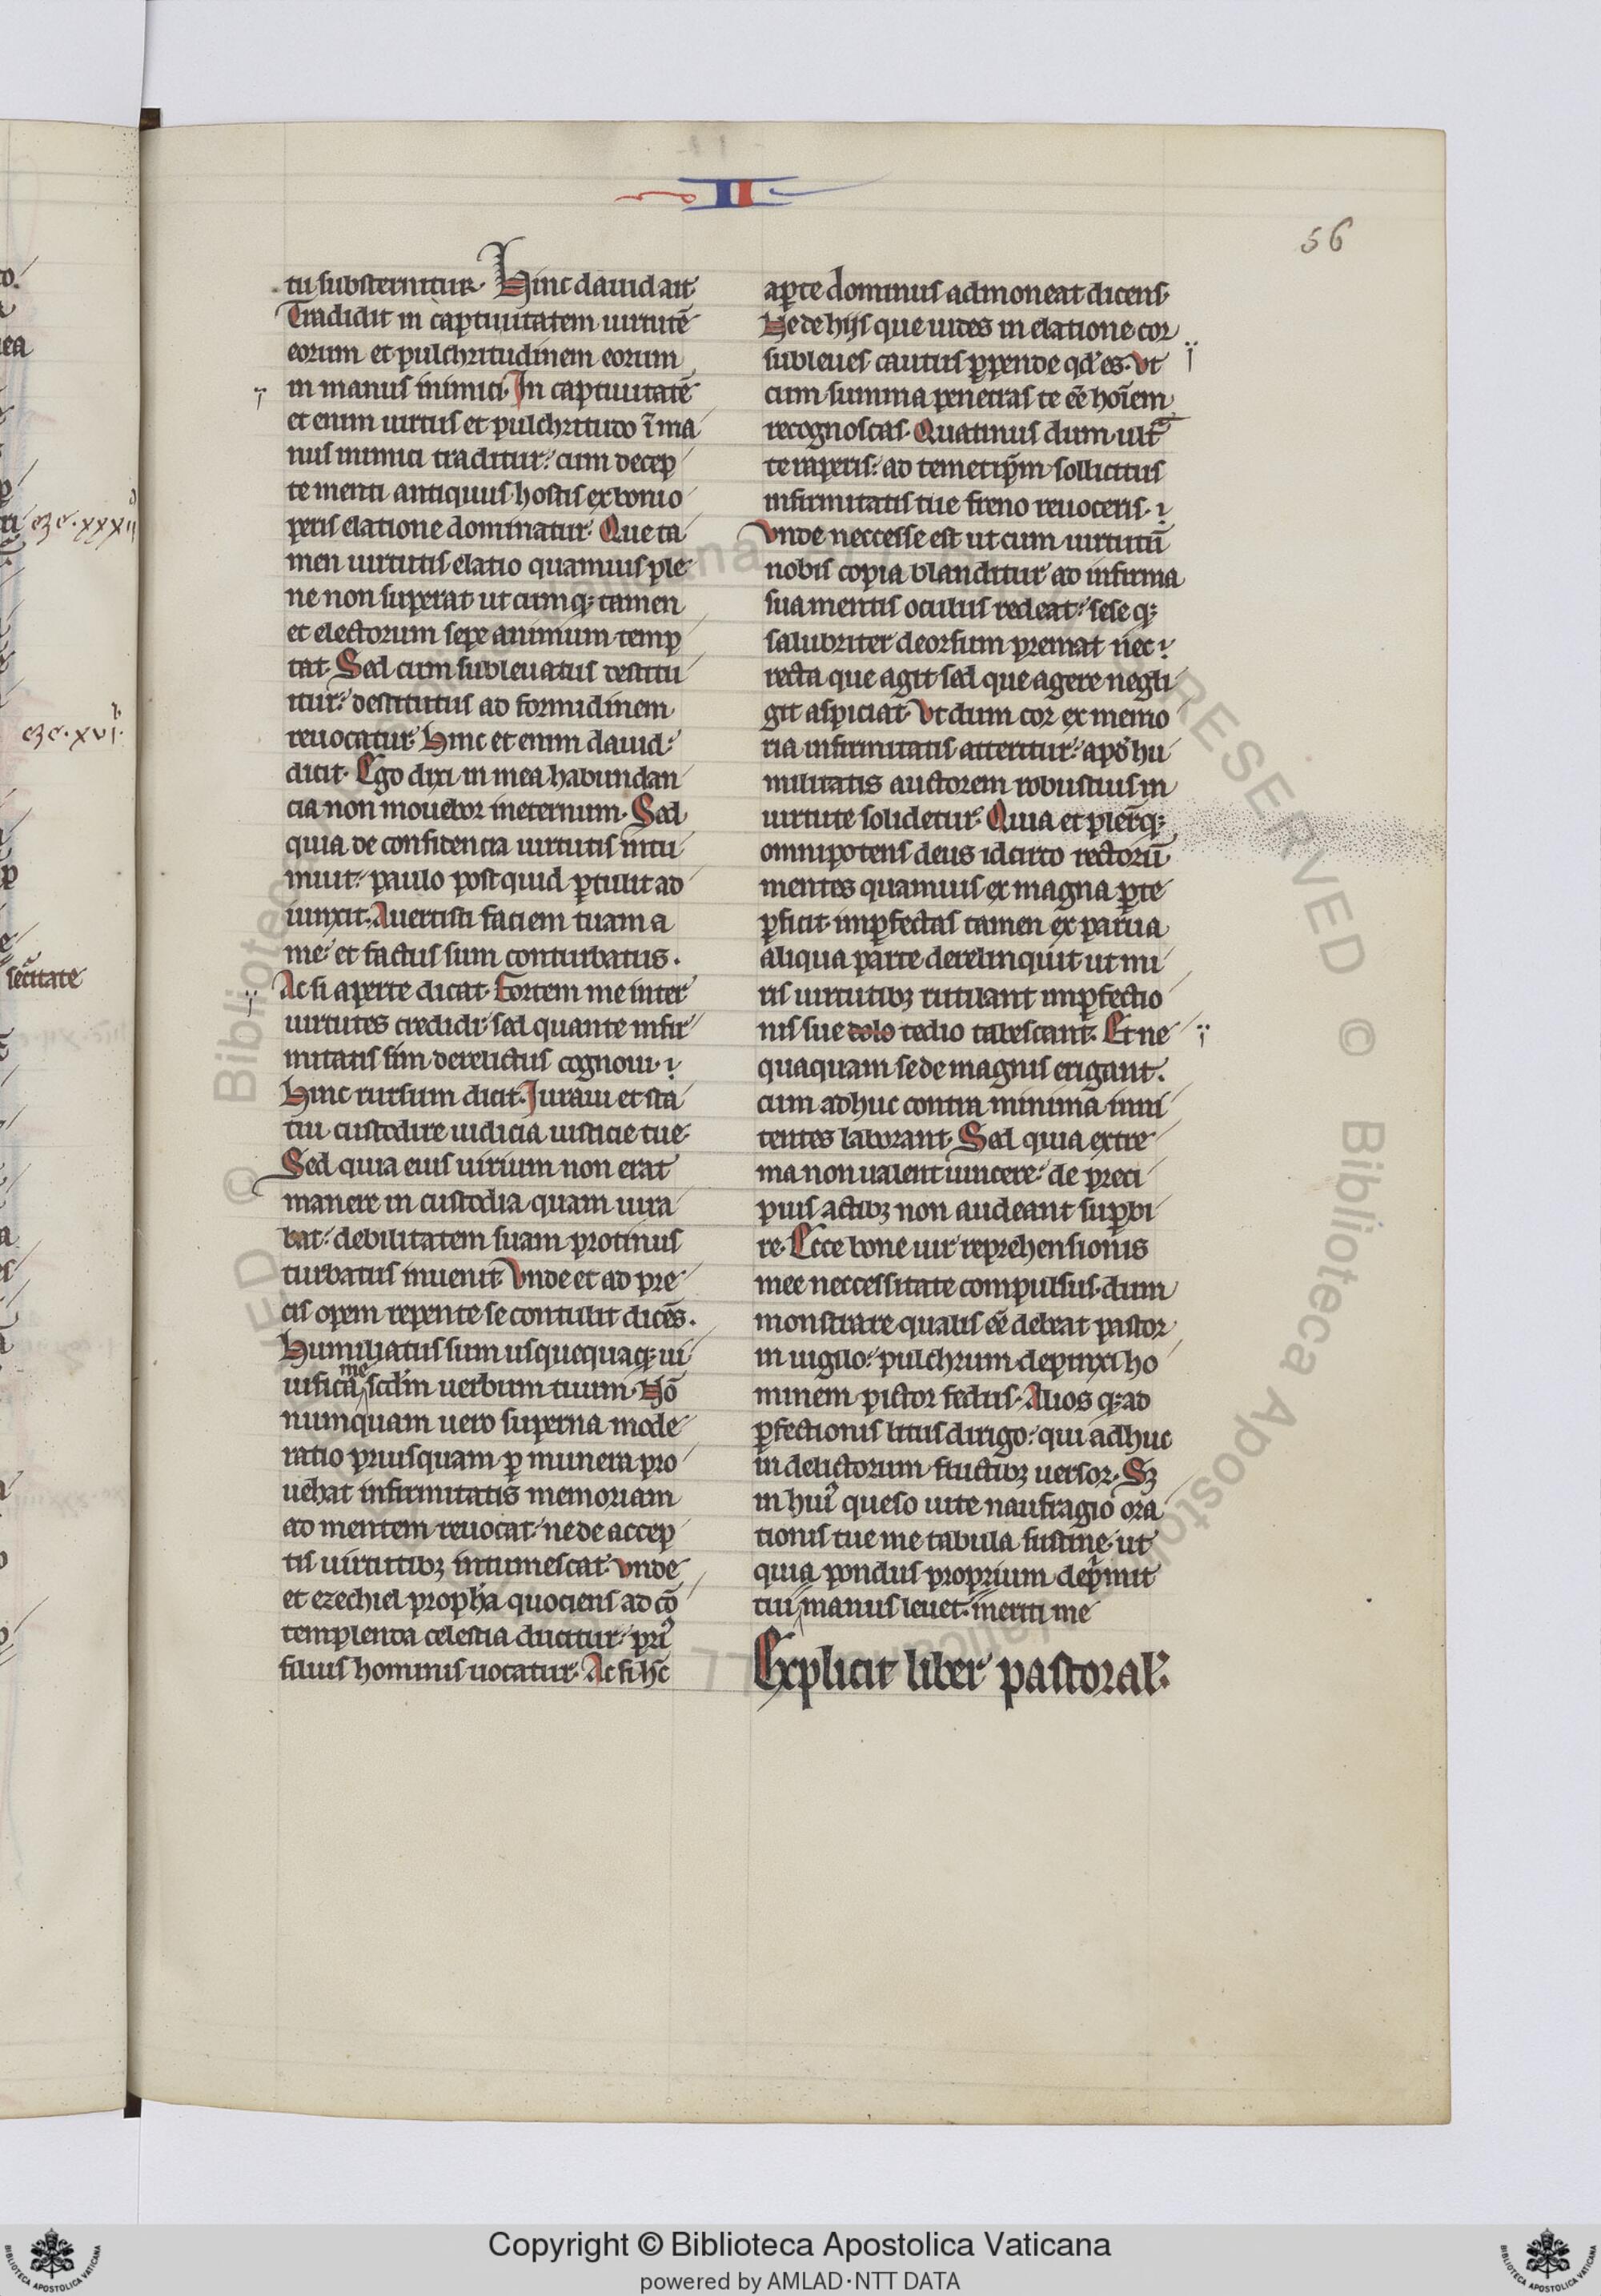 II
56
tu substernitur. Hinc dauid ait
Tradidit in captiuitatem uirtutē
eorum et pulchritudinem eorum
in manus inimici. In captiuitatē
et enim uirtus et pulchritudo ī ma
nus inimici traditur: cum decep
te menti antiquus hostis ex bono
peris elatione dominatur. Que ta
men uirtutis elatio quamuis ple
ne non superat utcumq; tamen
et electorum sepe animum temp
tat. Sed cum subleuatus destitu
itur: destitutus ad formidinem
reuocatur. Hinc et enim dauid:
dicit. Ego dixi in mea habundan
cia non mouebor ineternum. Sed
quia de confidencia uirtutis intu
muit: paulo post quid ꝑtulit ad
iunxit. Auertisti faciem tuam a
me: et factus sum conturbatus.
Ac si aperte dicat. Fortem me inter
uirtutes credidi: sed quante infir
mitatis sim derelictus cognoui.
Hinc rursum dicit. Iuraui et sta
tui custodire iudicia iusticie tue.
Sed quia eius uirium non erat
manere in custodia quam iura
bat: debilitatem suam protinus
turbatus inuenit. Vnde et ad pre
cis opem repente se contulit dicēs.
Humiliatus sum usquequaq; ui
uifica me scdm uerbum tuum. Nō
numquam uero superna mode
ratio priusquam ꝑ munera pro
uehat infirmitatis memoriam
ad mentem reuocat: ne de accep
tis uirtutibꝫ intumescat. vnde
et ezechiel propha quociens ad cō
templenda celestia ducitur: pri
filius hominis uocatur. Ac si hc
aꝑte dominus admoneat dicens.
Ne de hijs que uides in elatione cor
subleues cautus ꝑpende qd es. Vt
cum summa penetras te eē hoīem
recognoscas. Quatinus dum ult
te raperis: ad temetip̄m sollicitus
infirmitatis tue freno reuoceris.
Vnde neccesse est ut cum uirtutū
nobis copia blanditur ad infirma
sua mentis oculus redeat: sese q;
salubriter deorsum premat nec
recta que agit sed que agere negli
git aspiciat. Vt dum cor ex memo
ria infirmitatis atteritur: apd hu
militatis auctorem robustius in
uirtute solidetur. Quia et plerūq;
omnipotens deus idcirco rectorū
mentes quamuis ex magna ꝑte
ꝑficit imꝑfectas tamen ex parua
aliqua parte derelinquit ut mi
ris uirtutibꝫ rutilant imꝑfectio
nis sue dolo tedio tabescant. Et ne
quaquam se de magnis erigant.
cum adhuc contra minima inni
tentes laborant. Sed quia extre
ma non ualent uincere: de preci
puis actibꝫ non audeant suꝑbi
re. Ecce bone uir reprehensionis
mee neccessitate compulsus dum
monstrare qualis eē debeat pastor
in uigilo: pulchrum depinxi ho
minem pictor fedus. Alios q; ad
ꝑfectionis litus dirigo: qui adhuc
in delictorum fluctibꝫ uersor. Sꝫ
in hui queso uite naufragio ora
tionis tue me tabula sustine ut
quia pondus proprium deprimit
tui manus leuet meriti me
Explicit liber pastoral.
eze. xxxii
eze. xvi.
Copyright © Biblioteca Apostolica Vaticana
powered by AMLAD·NTT DATA